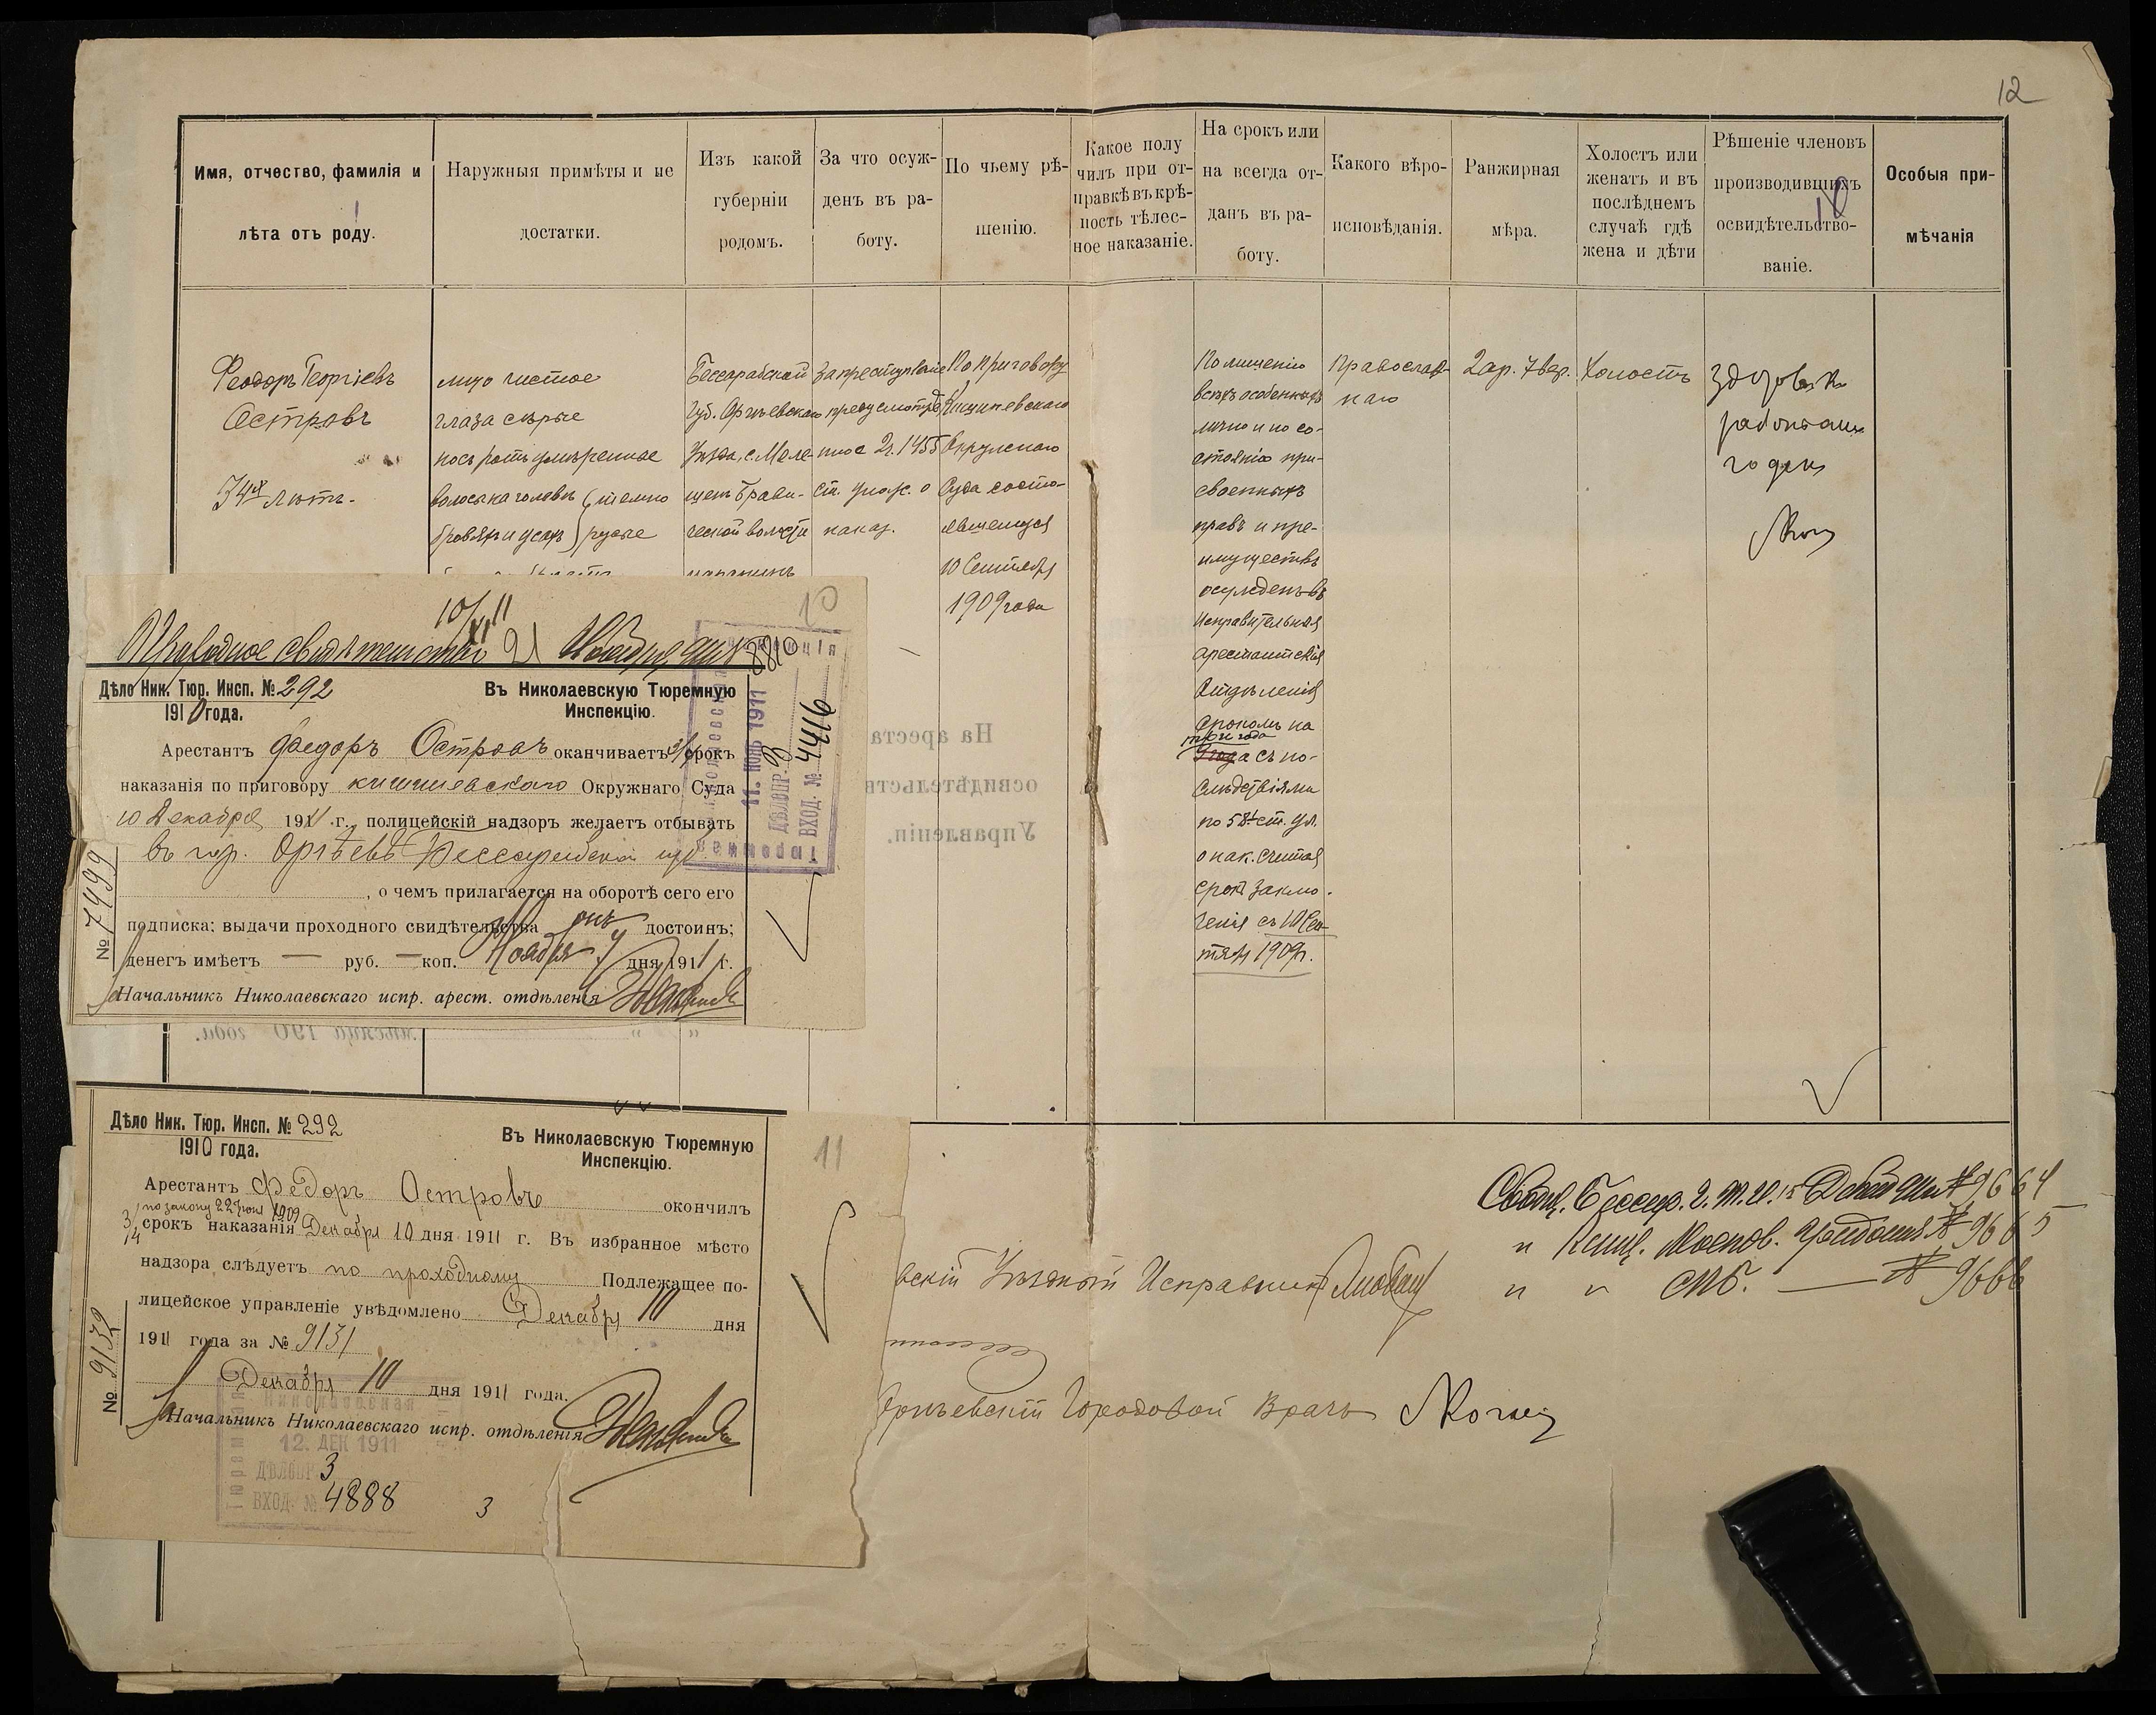 12
Имя, отчество, фамилія и
лѣта отъ роду.
Наружныя примѣты и не
достатки.
Изъ какой
губерніи
родомъ.
За что осуж-
денъ въ ра-
боту.
По чьему рѣ-
шенію.
Какое полу
чилъ при от-
правкѣ въ крѣ-
пость тѣлес-
ное наказаніе.
На срокъ или
на всегда от-
данъ въ ра-
боту.
Какого вѣро-
исповѣданія.
Ранжирная
мѣра.
Холостъ или
женатъ и въ
послѣднемъ
случаѣ гдѣ
жена и дѣти
Рѣшеніе членовъ
производившихъ
освидѣтельство-
ваніе.
Особыя при-
мѣчанія
Феодоръ Георгіевъ
Островъ
34х лѣтъ.
лицо чистое
глаза сѣрые
носъ ротъ умѣренные
волосы на головѣ (темно
бровяхъ и усахъ) русые
Бессарабской
Губ. Оргѣевскаго
Уѣзда, с. Меле-
щенъ Брави-
ческой волости
царанинъ
За преступленіе
предусмотрѣ
нное 2ч. 1455
ст. улож. о
наказ.
По Приговору
Кишиневскаго
Окружнаго
Суда состо-
явшемуся
10 Сентября
1909 года
По лишенію
всѣхъ особенныхъ
лично и по со-
стоянію при-
своенныхъ
правъ и пре-
имуществъ
осужденъ въ
Исправительныя
арестантскія
Отдѣленія
срокомъ на
три года
съ по-
слѣдствіями
по 58¹ ст. Ул.
о нак. считая
срокъ заклю-
ченія съ 10 Сен-
тября 1909 г.
Православ-
наго
2 ар. 7 вер.
Холостъ
Здоровъ къ
работамъ
годенъ
10/XI 11
10
Проходное свидѣтельство 21 Ноября 8810
Дѣло Ник. Тюр. Инсп. № 292
1910 года.
Въ Николаевскую Тюремную
Инспекцію.
Арестантъ Федоръ Островъ оканчиваетъ 3/4 срокъ
наказанія по приговору кишиневскаго Окружнаго Суда
10 Декабря 1911 г., полицейскій надзоръ желаетъ отбывать
въ гор. Оргѣевѣ Бессарабской губ.
, о чемъ прилагается на оборотѣ сего его
подписка; выдачи проходного свидѣтельства онъ достоинъ;
денегъ имѣетъ — руб. — коп. Ноября 4 дня 1911 г.
Начальникъ Николаевскаго испр. арест. отдѣленія
№ 7499
11. НОЯ 1911
ДѢЛОПР. 3
ВХОД. № 4416
На ареста
освидѣтельств
Управленіи.
мѣсяца 190 года.
Дѣло Ник. Тюр. Инсп. № 292
1910 года.
Въ Николаевскую Тюремную
Инспекцію.
11
Арестантъ Федоръ Островъ окончилъ
по закону 22 Іюня 1909
3/4 срокъ наказанія Декабря 10 дня 1911 г. Въ избранное мѣсто
надзора слѣдуетъ по проходному Подлежащее по-
лицейское управленіе увѣдомлено Декабря 10 дня
1911 года за № 9131
Декабря 10 дня 1911 года.
Начальникъ Николаевскаго испр. отдѣленія
№ 9132
Николаевская
12. ДЕК 1911
ДѢЛОПР 3
ВХОД. № 4888
3
Сообщ. Бессар. Г. Т. И. 15 Декаб № 9664
" Канц. Москов. № 9665
" " СПБ. — № 9666
вскій Уѣздный Исправникъ
Оргѣевскій Городовой Врачъ